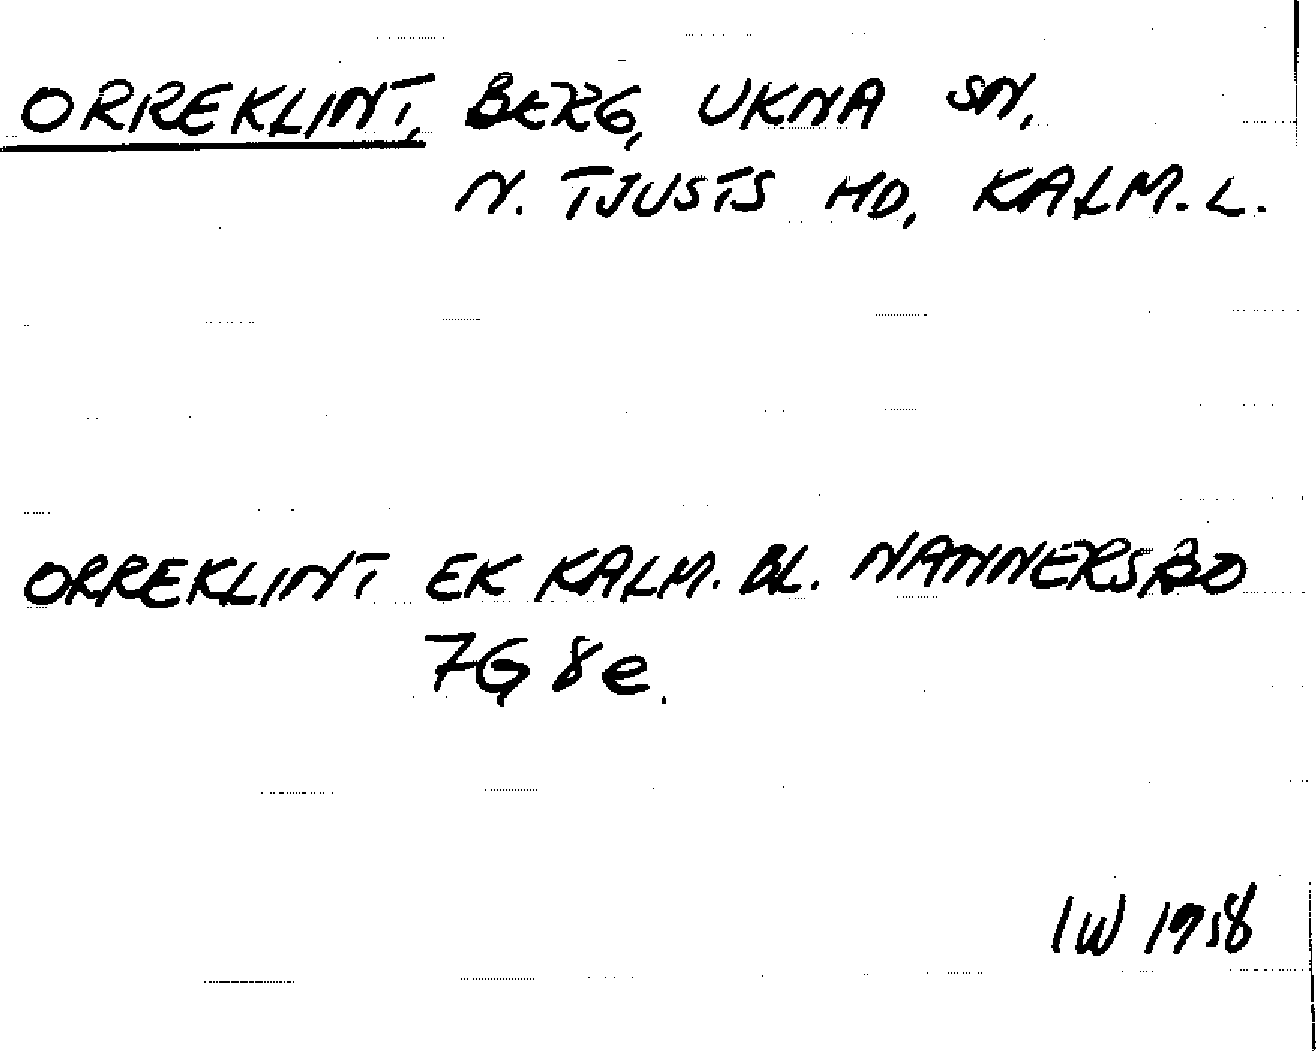 ORREKLINT, BERG, UKNA SN,
N. TJUSTS HD, KALM. L.
ORREKLINT EK KALM. BL. NANNERSBO
7G 8e.
IW 1958